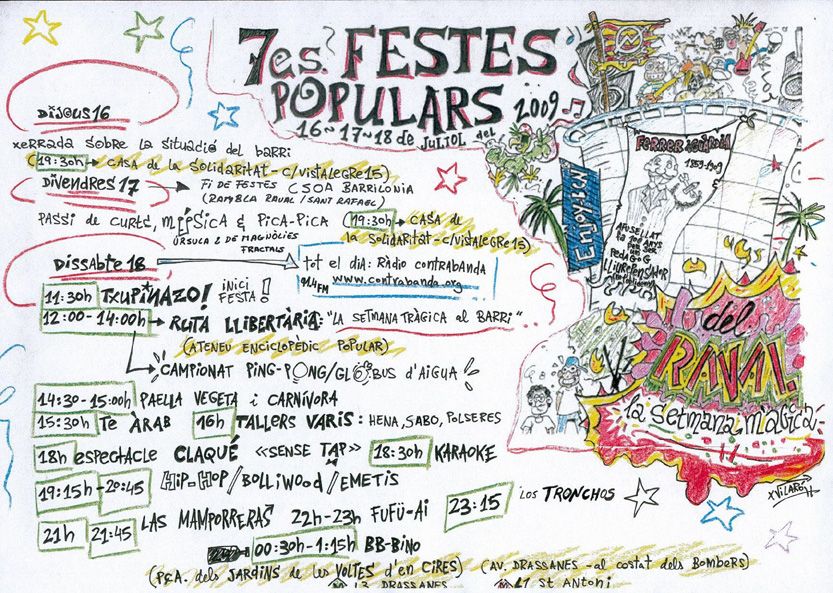 7es. FESTES
POPULARS 2009
16~17~18 de JULIOL del
DIJOUS 16
xerrada sobre la situació del barri
(19:30h → CASA de la SOLIDARITAT - C/VISTALEGRE 15)
DIVENDRES 17 → FI DE FESTES CSOA BARRILONIA
(RAMBLA RAVAL / SANT RAFAEL)
PASSI de CURTS, MÚSICA & PICA-PICA (19:30h → CASA de
la SOLIDARITAT - C/VISTALEGRE 15)
ÚRSULA & DE MAGNÒLIES
FRACTALS
DISSABTE 18 → tot el dia: Ràdio contrabanda
91.4 FM www.contrabanda.org
11:30h TXUPINAZO! INICI
FESTA!
12:00 - 14:00h → RUTA LLIBERTÀRIA: "LA SETMANA TRÀGICA al BARRI"
(ATENEU ENCICLOPÈDIC POPULAR)
CAMPIONAT PING-PONG/GLOBUS D'AIGUA
14:30 - 15:00h PAELLA VEGETA i CARNÍVORA
15:30h Te ÀRAB 16h TALLERS VARIS: HENA, SABO, POLSERES
18h espectacle CLAQUÉ «SENSE TAP» 18:30h KARAOKE
19:15h - 20:45 HIP-HOP/BOLLIWOOD/EMETIS
21h 21:45 LAS MAMPORRERAS 22h-23h FUFÜ-Ai 23:15 LOS TRONCHOS
00:30h - 1:15h BB-BINO
(PÇA. dels JARDINS de les VOLTES d'en CIRES) (AV. DRASSANES - al costat dels BOMBERS)
L3 DRASSANES L1 St ANTONI
FERRER i GUÀRDIA
1859-1909
AFUSELLAT
fa 100 ANYS
PEDAGOG
LLIUREPENSADOR
ENJOY-ICN
del
RAVAL
la setmana màgica
XVILARÓ